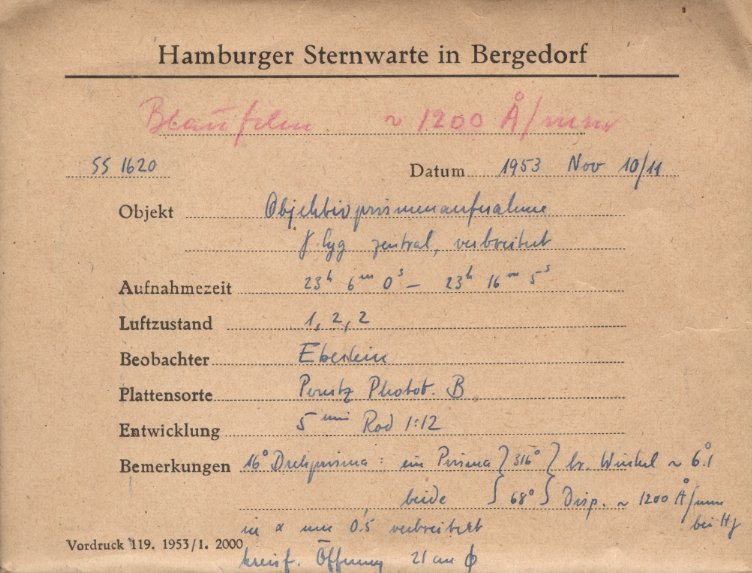 Hamburger Sternwarte in Bergedorf
Blaufilm ~ 1200 Å/mm
SS 1620 Datum 1953 Nov 10/11
Objekt Objektivprismenaufnahme
γ Cyg zentral, verbreitert
Aufnahmezeit 23ʰ 6ᵐ 0ˢ – 23ʰ 16ᵐ 5ˢ
Luftzustand 1, 2, 2
Beobachter
Plattensorte Perutz Photot. B
Entwicklung 5 min Rod 1:12
Bemerkungen 16° Drehprisma: ein Prisma } 316° } br. Winkel ~ 6°.1
beide { 68° } Disp. ~ 1200 Å/mm
bei Hγ
in α um 0.5 verbreitert
Vordruck 119. 1953/1. 2000
kreisf. Öffnung 21 cm ϕ